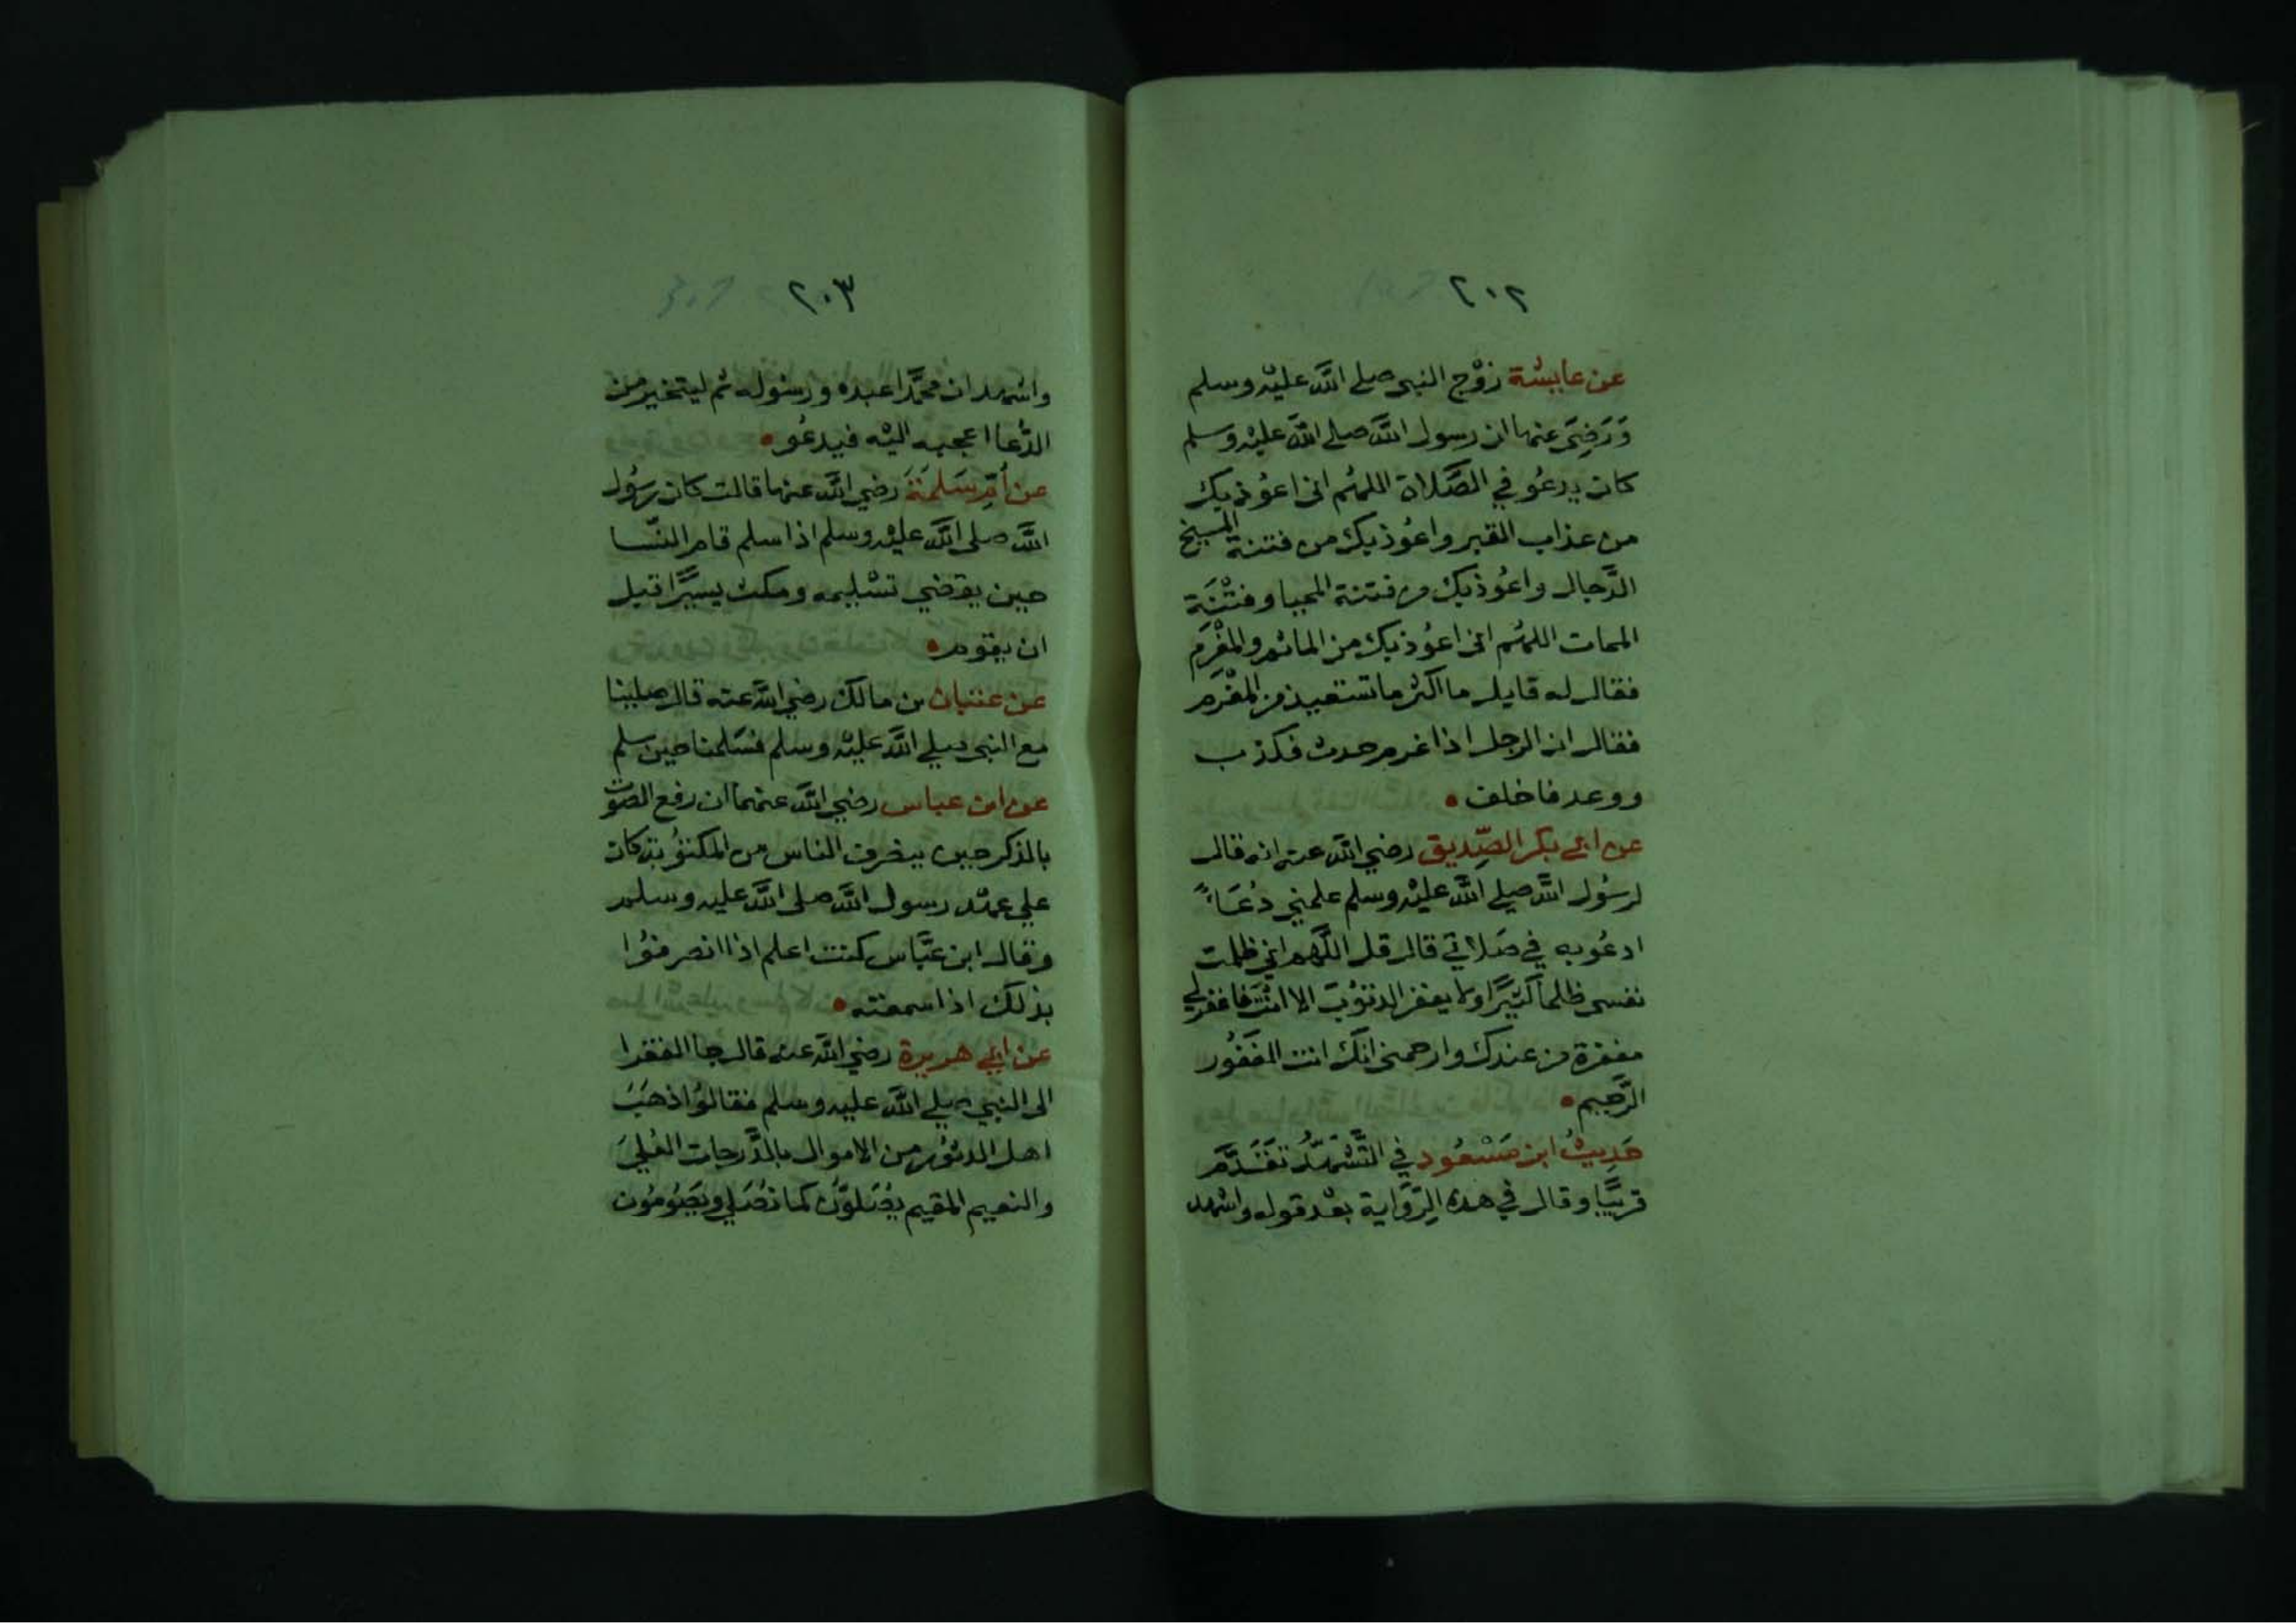 ٢٠٢
عن عايشة زوْج النبي صلى الله عليْه وسلم
وَرَضِىَ عنها ان رسول الله صلى الله عليْه وسلم
كان يدعُو في الصَّلاة اللهُم انى اعوُذ بك
من عذاب القبر واعُوذ بك من فتنة المسيخ
الدَّجال واعُوذ بك من فتنة المحيا وفتْنَة
الممات اللهُم انى اعوُذ بك من الماثم والمغْرَم
فقال له قايل ما اكثر ما تستعيذ من المغْرَم
فقال ان الرجل اذا غرم حدث فكذب
ووعد فاخلف
عن ابي بكر الصِّديق رضي الله عنه انه قال
لرسُول الله صلى الله عليْه وسلم علمني دُعَاءً
ادعُو به في صَلاتي قال قل اللَّهم اني ظلمت
نفسى ظلماً كثيرًا ولا يغفر الذنوُبَ الا انْتَ فاغفر لي
مغفرة من عندك وارحمنى انكَ انت الغَفُور
الرَّحيم
حَدِيثُ ابن مَسْعُود في التَّشهُّد تقَدَّم
قريبًا وقال في هذه الرِّوَاية بعْد قوله واشهد
٢٠٣
واشهد ان محمَّدا عبده ورسُوله ثم ليتخير من
الدُّعا اعجبه اليْه فيدعُو
عن أمِّ سَلمَةَ رضي الله عنها قالت كان رسُول
الله صلى الله عليْه وسلم اذا سلم قام النّسا
حين يقضي تسْليمه ومكث يسيرًا قبل
ان يقوم
عن عتبان بن مالك رضي الله عنه قال صلينا
مع النبي صلي الله عليْه وسلم فسَلمنا حين سلم
عن ابن عباس رضي الله عنهما ان رفع الصوْت
بالذكر حين ينصرف الناس من المكتوُبة كان
علي عهْد رسول الله صلى الله عليه وسلم
وقال ابن عبَّاس كنت اعلم اذا انصرفوُا
بذلك اذا سمعته
عن ابي هريرة رضي الله عنه قال جا الفقرا
الى النبي صلي الله عليه وسلم فقالوُا ذهَبَ
اهل الدثوُر من الاموال بالدَّرجات العُلىَ
والنعيم المقيم يصَلوُّن كما نصَلي ويصَوُموُن